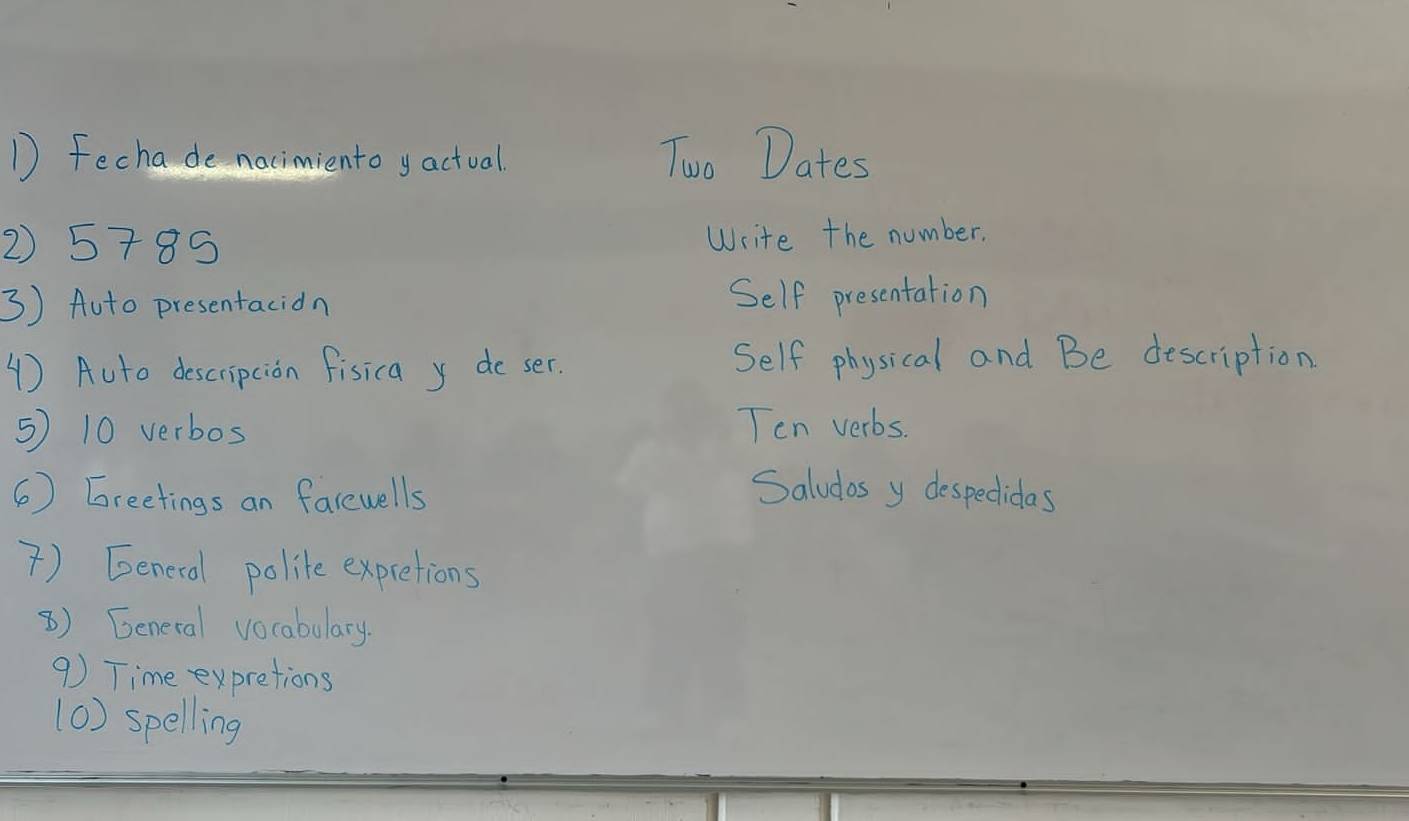 1) Fecha de nacimiento y actual.
Two Dates
2) 5785
Write the number.
3) Auto presentación
Self presentation
4) Auto descripción física y de ser.
Self physical and Be description.
5) 10 verbos
Ten verbs.
6) Greetings an farewells
Saludos y despedidas
7) General polite expretions
8) General vocabulary.
9) Time expretions
10) spelling